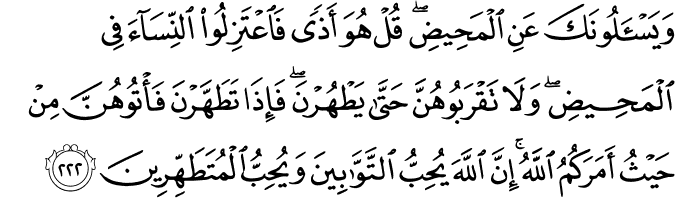 وَيَسْـَٔلُونَكَ عَنِ ٱلْمَحِيضِ ۖ قُلْ هُوَ أَذًى فَٱعْتَزِلُوا۟ ٱلنِّسَآءَ فِى
ٱلْمَحِيضِ ۖ وَلَا تَقْرَبُوهُنَّ حَتَّىٰ يَطْهُرْنَ ۖ فَإِذَا تَطَهَّرْنَ فَأْتُوهُنَّ مِنْ
حَيْثُ أَمَرَكُمُ ٱللَّهُ ۚ إِنَّ ٱللَّهَ يُحِبُّ ٱلتَّوَّٰبِينَ وَيُحِبُّ ٱلْمُتَطَهِّرِينَ ۝٢٢٢